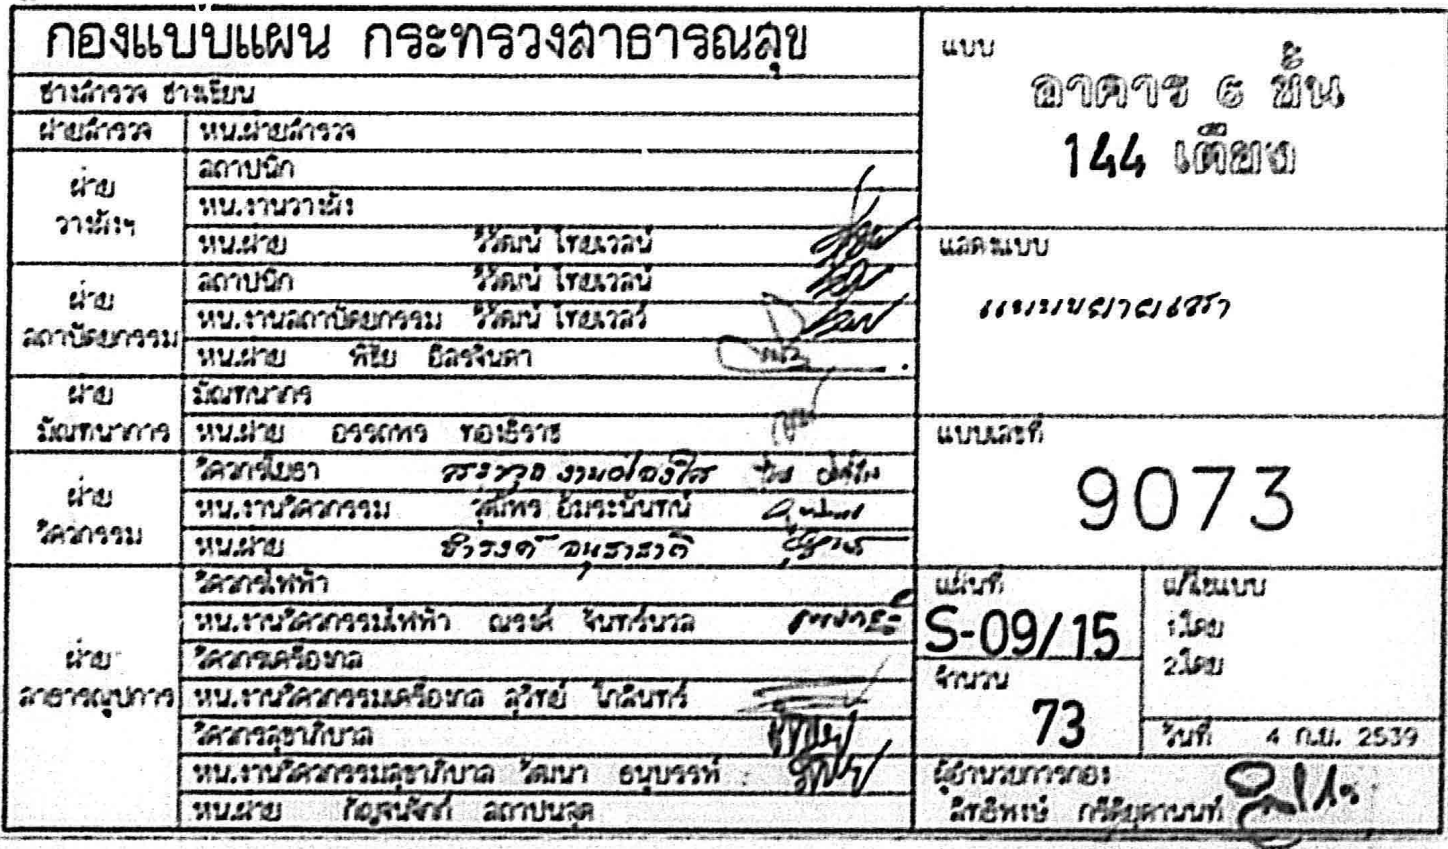 กองแบบแผน กระทรวงสาธารณสุข
ช่างสำรวจ ช่างเขียน
ฝ่ายสำรวจ หน.ฝ่ายสำรวจ
ฝ่าย
วางผังฯ
สถาปนิก
หน.งานวางผัง
หน.ฝ่าย วิวัฒน์ ไทยเวลน์
ฝ่าย
สถาปัตยกรรม
สถาปนิก วิวัฒน์ ไทยเวลน์
หน.งานสถาปัตยกรรม วิวัฒน์ ไทยเวลว์
หน.ฝ่าย พิชัย อิสรจินดา
ฝ่าย
มัณฑนาการ
มัณฑนากร
หน.ฝ่าย อรรถพร ทองธิราช
ฝ่าย
วิศวกรรม
วิศวกรโยธา
หน.งานวิศวกรรม
หน.ฝ่าย
ฝ่าย
สาธารณูปการ
วิศวกรไฟฟ้า
หน.งานวิศวกรรมไฟฟ้า ณรงค์ จันทร์นวล
วิศวกรเครื่องกล
หน.งานวิศวกรรมเครื่องกล สุวิทย์
วิศวกรสุขาภิบาล
หน.งานวิศวกรรมสุขาภิบาล วัฒนา ธนบรรพ์
หน.ฝ่าย
แบบ
อาคาร 6 ชั้น
144 เตียง
แสดงแบบ
แบบขยายเสา
แบบเลขที่
9073
แผ่นที่
S-09/15
จำนวน
73
แก้ไขแบบ
1.โดย
2.โดย
วันที่ 4 ก.ย. 2539
ผู้อำนวยการกอง
สิทธิพงษ์